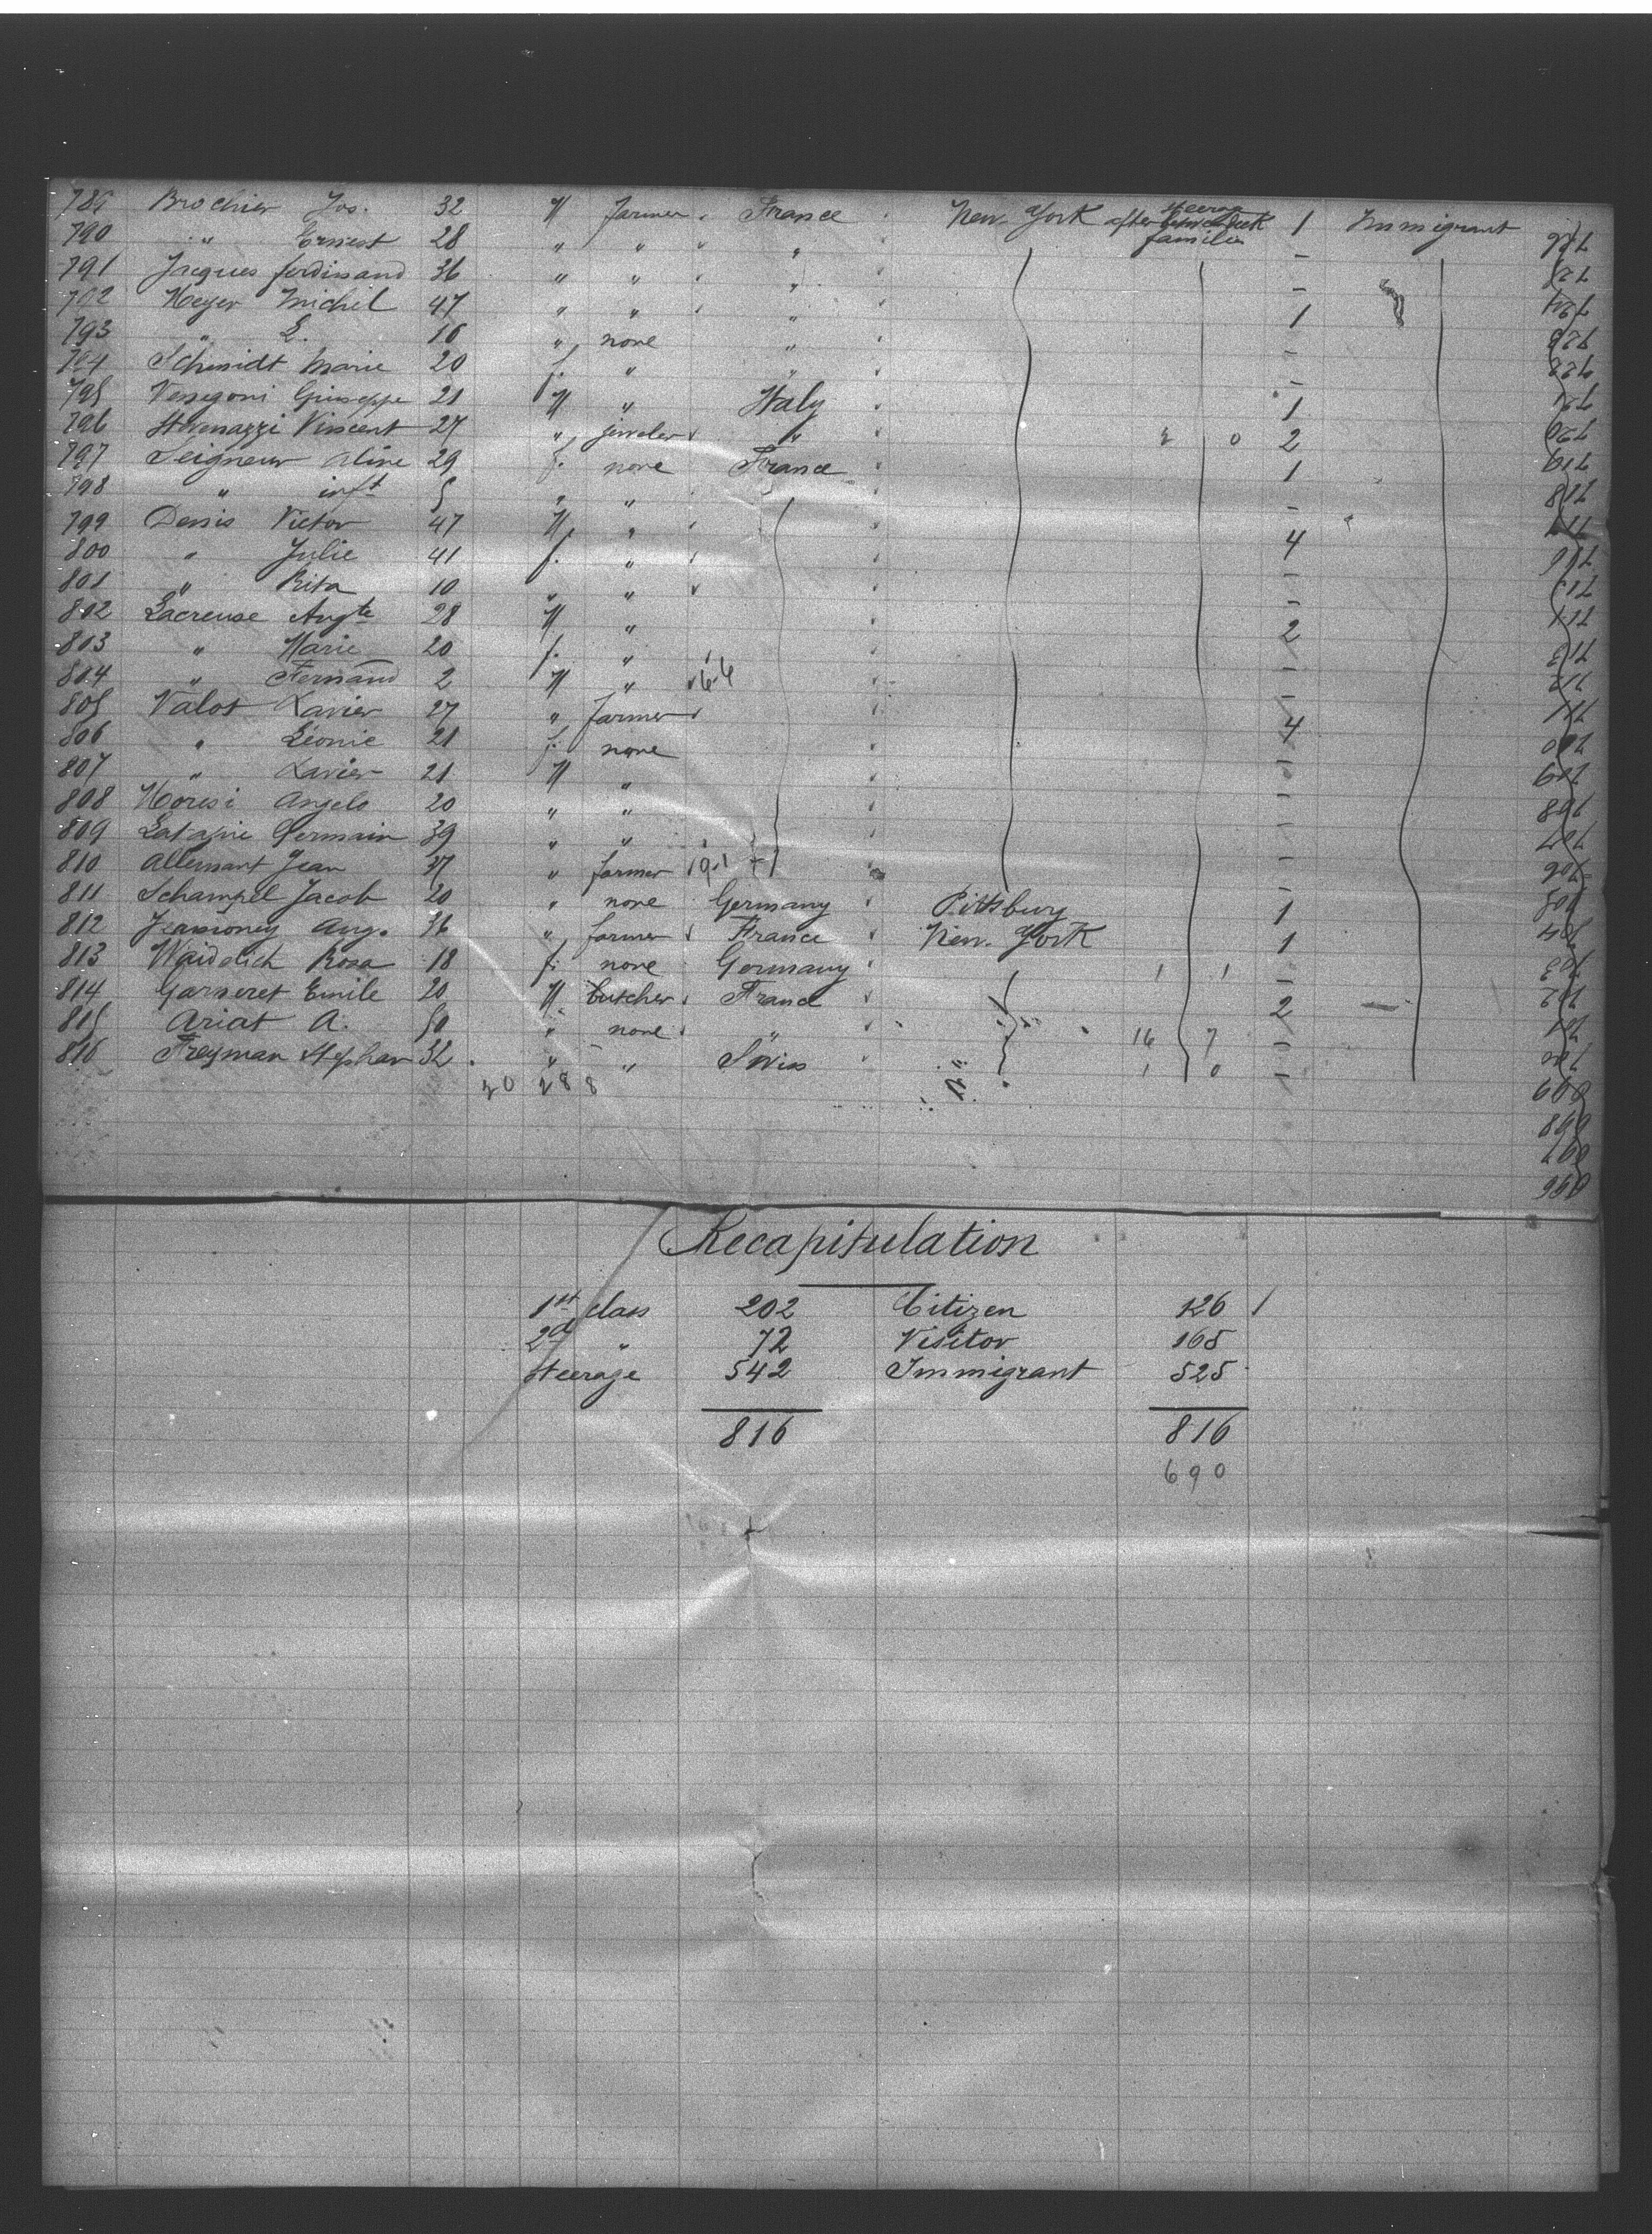 789 Brochier Jos. 32 M farmer France New-York after steerage families 1 Immigrant
790 " Ernest 28 " " " –
791 Jacques ferdinand 36 " " " –
792 Meyer Michel 47 " " " 1
793 " E. 16 " none " –
794 Schmidt Marie 20 f. " " –
795 Vessegoni Giuseppe 21 M " Italy 1
796 Vincent 27 " jeweler " 2 0 2
797 Seigneur Aline 29 f. none France 1
798 " inft 5 " " –
799 Denis Victor 47 M " 4
800 " Julie 41 f. " –
801 " Rita 10 " " –
802 Lacreuse Augte 28 M " 2
803 " Marie 20 f. " –
804 " Fernand 2 M " 6-6 –
805 Valot Xavier 27 " farmer 4
806 " Léonie 21 f. none –
807 " Xavier 21 M " –
808 Moresi Angelo 20 " " –
809 Latapie Germain 39 " " –
810 Allemant Jean 37 " farmer 9-1 –
811 Schampel Jacob 20 " none Germany Pittsburg 1
812 Aug. 36 " farmer France New-York 1
813 Waidelich Rosa 18 f. none Germany 1 1 –
814 Garneret Emile 20 M butcher France 2
815 Ariat A. 50 " none " 16 7 –
816 Freyman Stephan 32 " " Swiss 1 0 –
20 288
Recapitulation
1st class 202 Citizen 126 /
2d " 72 Visitor 165
Steerage 542 Immigrant 525
816 816
690